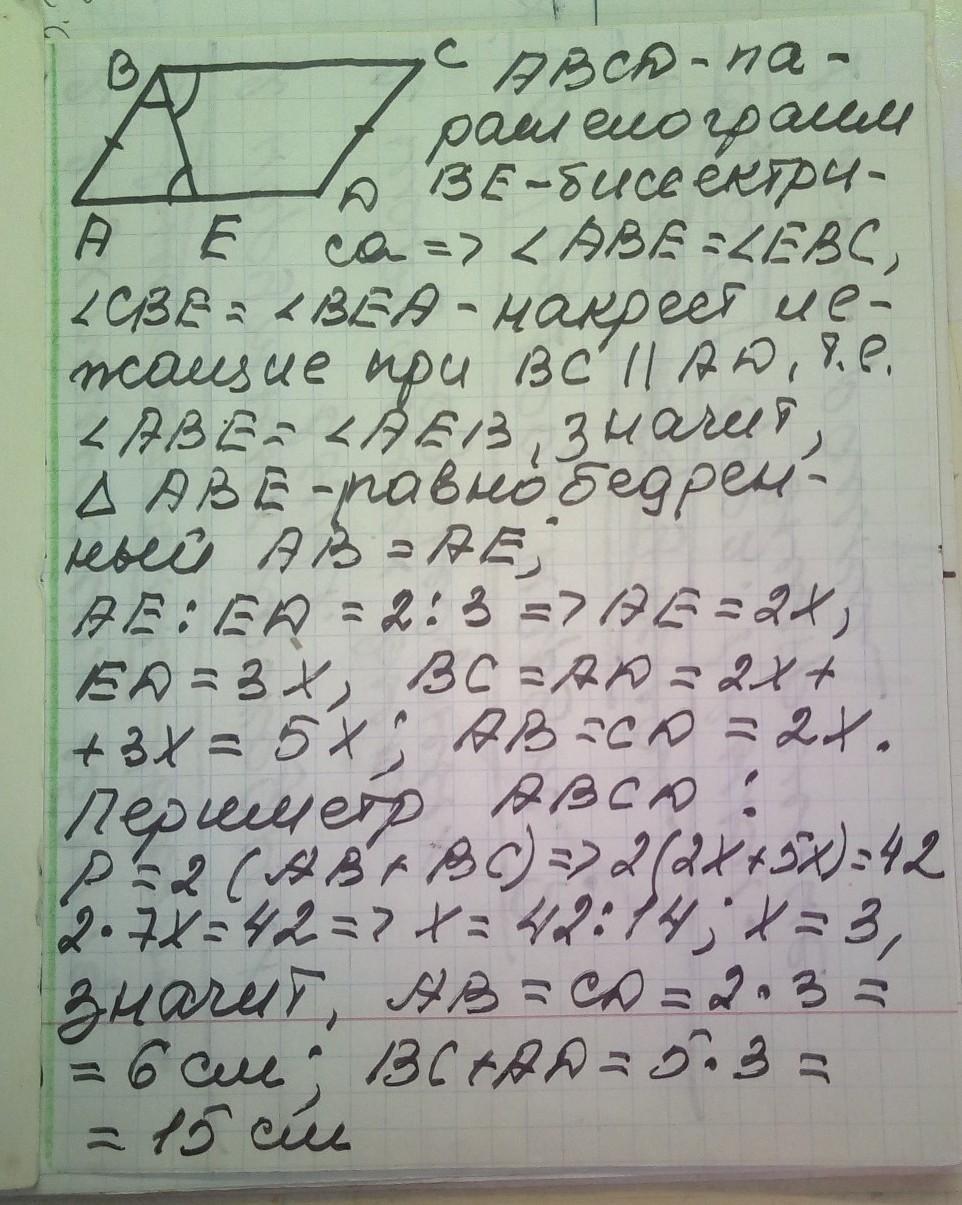 B C ABCD - па-
раллелограмм
BE - биссектри-
A E D
са => ∠ABE = ∠EBC,
∠CBE = ∠BEA - накрест ле-
жащие при BC || AD, т.е.
∠ABE = ∠AEB, значит,
Δ ABE - равнобедрен-
ный AB = AE;
AE : ED = 2 : 3 => AE = 2x,
ED = 3x, BC = AD = 2x +
+ 3x = 5x; AB = CD = 2x.
Периметр ABCD :
P = 2 (AB + BC) => 2(2x+5x) = 42
2 · 7x = 42 => x = 42 : 14; x = 3,
значит, AB = CD = 2 · 3 =
= 6 см; BC + AD = 5 · 3 =
= 15 см